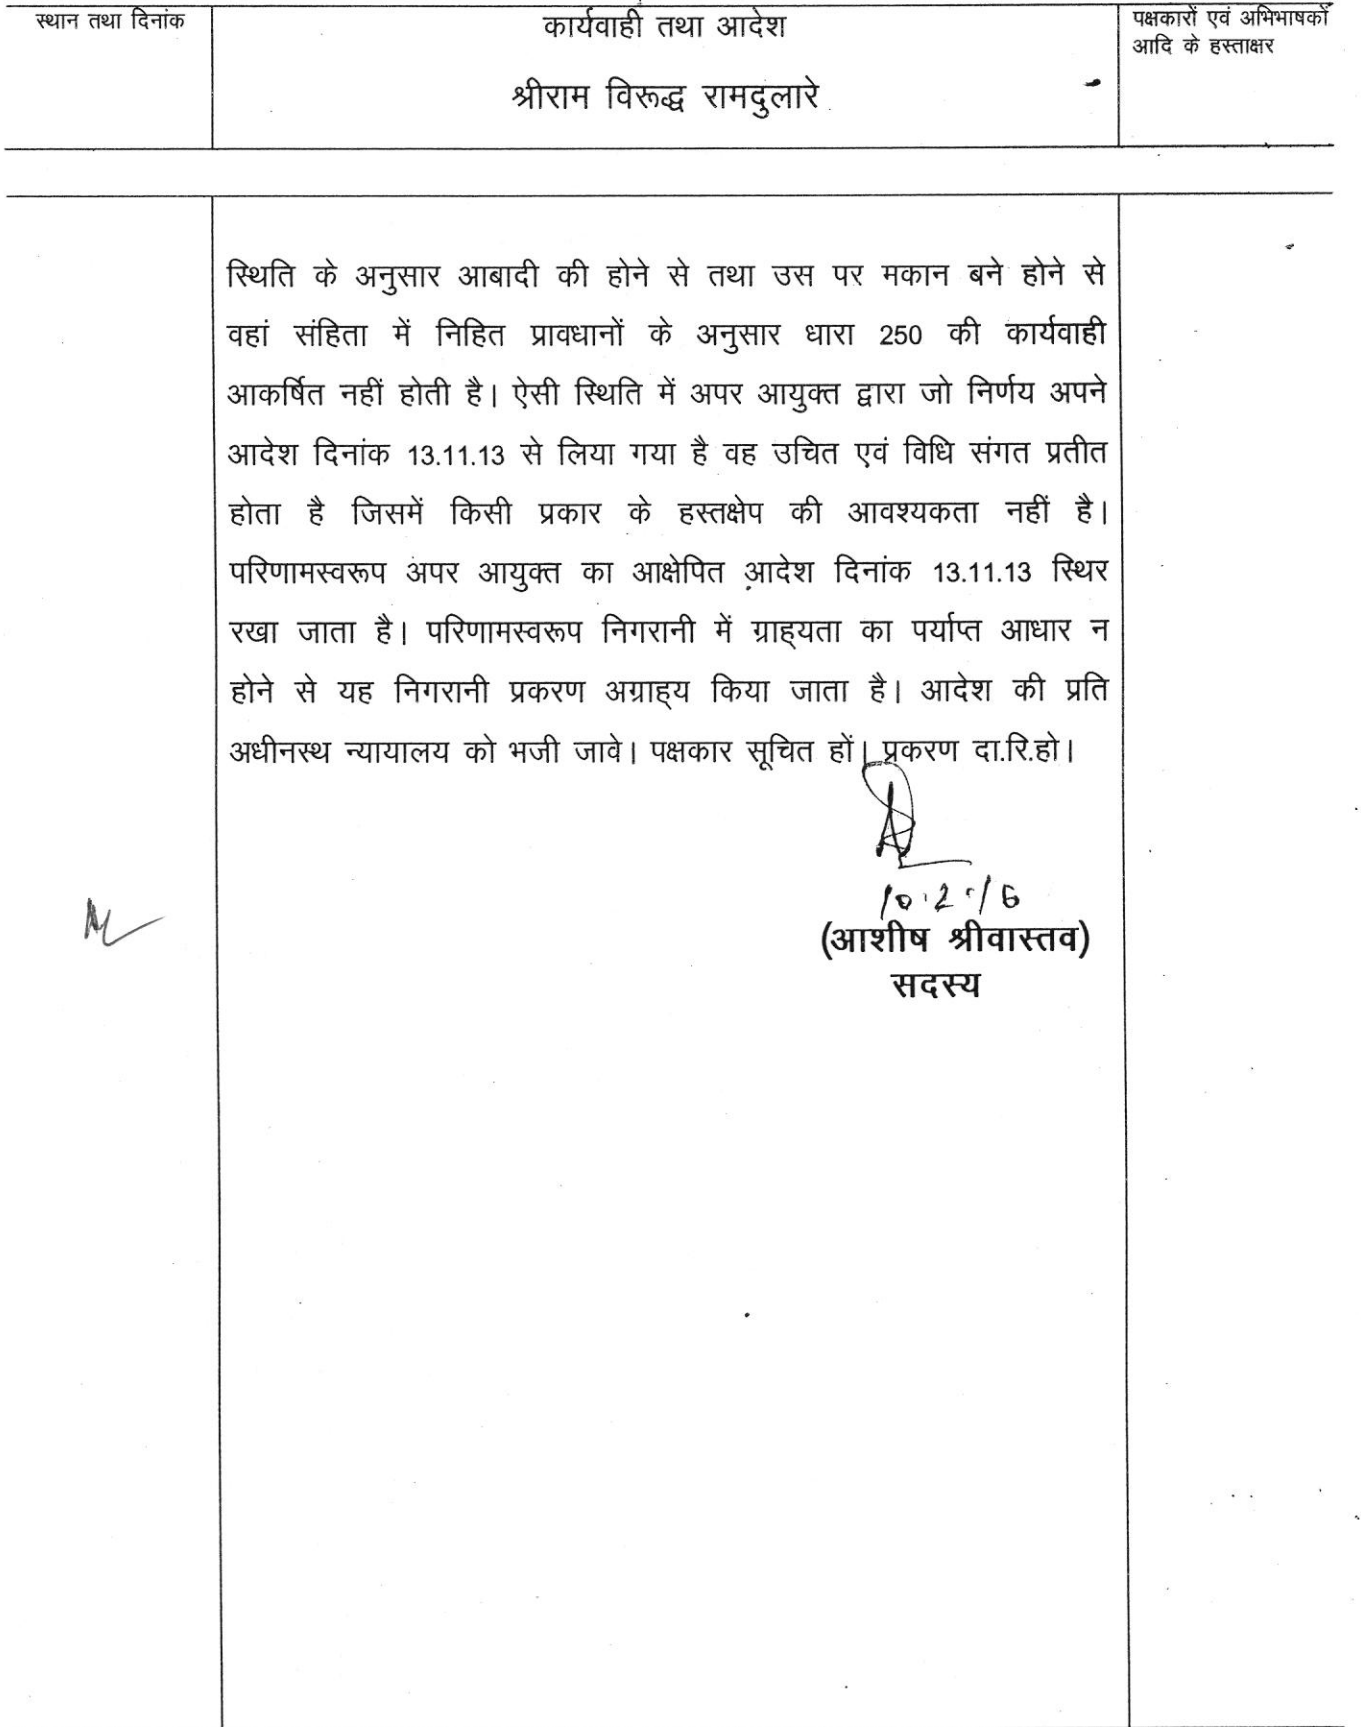 स्थान तथा दिनांक
कार्यवाही तथा आदेश
पक्षकारों एवं अभिभाषकों
आदि के हस्ताक्षर
श्रीराम विरूद्ध रामदुलारे
स्थिति के अनुसार आबादी की होने से तथा उस पर मकान बने होने से
वहां संहिता में निहित प्रावधानों के अनुसार धारा 250 की कार्यवाही
आकर्षित नहीं होती है। ऐसी स्थिति में अपर आयुक्त द्वारा जो निर्णय अपने
आदेश दिनांक 13.11.13 से लिया गया है वह उचित एवं विधि संगत प्रतीत
होता है जिसमें किसी प्रकार के हस्तक्षेप की आवश्यकता नहीं है।
परिणामस्वरूप अपर आयुक्त का आक्षेपित आदेश दिनांक 13.11.13 स्थिर
रखा जाता है। परिणामस्वरूप निगरानी में ग्राह्यता का पर्याप्त आधार न
होने से यह निगरानी प्रकरण अग्राह्य किया जाता है। आदेश की प्रति
अधीनस्थ न्यायालय को भजी जावे। पक्षकार सूचित हों। प्रकरण दा.रि.हो।
10.2.16
(आशीष श्रीवास्तव)
सदस्य